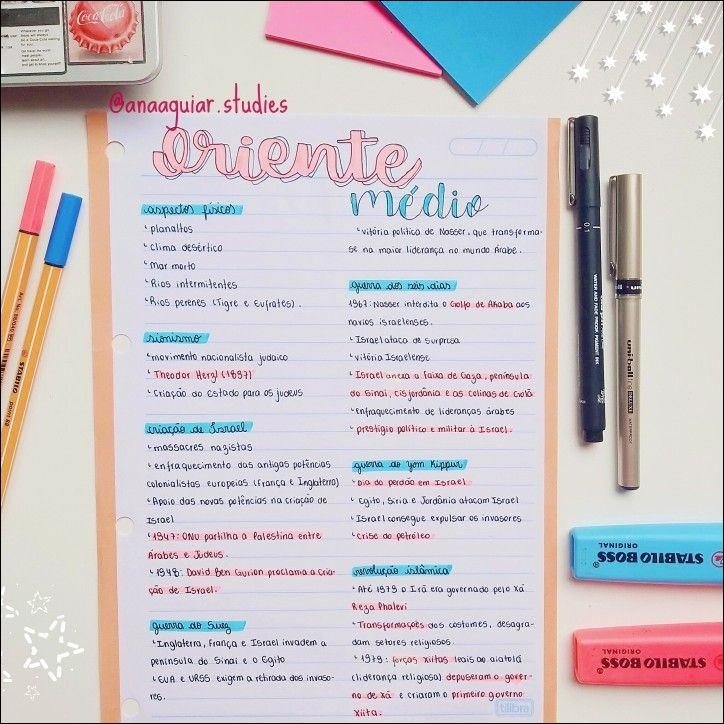 Coca-Cola
@anaaguiar.studies
oriente
médio
aspectos físicos
planaltos
Clima desértico
Mar morto
Rios intermitentes
Rios perenes (Tigre e Eufrates).
sionismo
movimento nacionalista judaico
Theodor Herzl (1897)
Criação do Estado para os judeus
criação de Israel
massacres nazistas
enfraquecimento das antigas potências
colonialistas europeias (França e Inglaterra)
Apoio das novas potências na criação de
Israel
1947: ONU partilha a Palestina entre
Árabes e Judeus.
1948: David Ben Gurion proclama a Cria-
ção de Israel.
guerra do Suez
Inglaterra, França e Israel invadem a
península do Sinai e o Egito
EUA e URSS exigem a retirada dos invaso-
res.
vitória política de Nasser, que transforma-
se na maior liderança no mundo Árabe.
guerra dos seis dias
1967: Nasser interdita o Golfo de Akaba aos
navios israelenses.
Israel ataca de surpresa
vitória Israelense
Israel anexa a Faixa de Gaza, península
do Sinai, cisjordânia e as Colinas de Golã
enfraquecimento de lideranças árabes
prestígio político e militar à Israel.
guerra do yom Kippur
Dia do perdão em Israel
Egito, Síria e Jordânia atacam Israel
Israel consegue expulsar os invasores
Crise do petróleo
revolução islâmica
Até 1979 o Irã era governado pelo xá
Reza Phalevi
Transformações dos costumes, desagra-
dam setores religiosos.
1979: forças xiitas leais ao aiatolá
(liderança religiosa) depuseram o gover-
no de xá e criaram o primeiro governo
xiita.
tilibra
STABILO
point 88
0.1
uni-ball
STABILO BOSS
ORIGINAL
STABILO BOSS
ORIGINAL